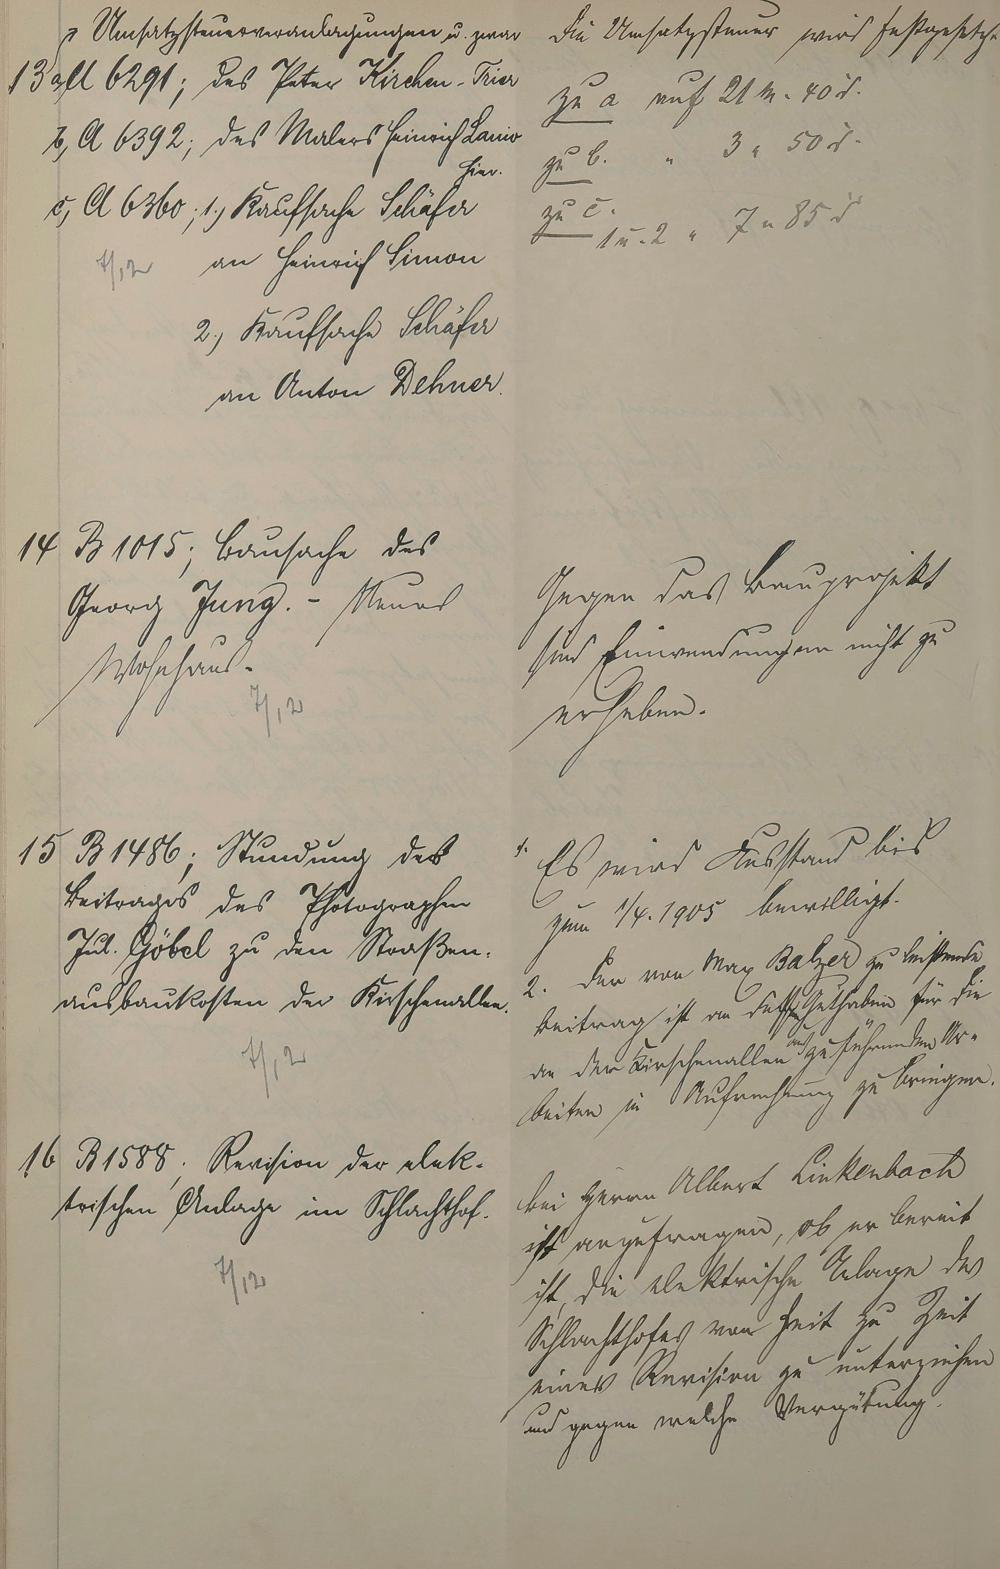 Umsatzsteuerveranlagungen u. zwar
13 a, A 6291; des Peter Kirchen - Trier
b, A 6392; des Malers Heinrich Lanio
hier.
c, A 6360; 1.) Kaufsache Schäfer
an Heinrich Simon
7/12
2.) Kaufsache Schäfer
an Anton Dehner.
Die Umsatzsteuer wird festgesetzt
zu a auf 21 M. 40 d.
zu b. " 3 " 50 d.
zu c.
1 u. 2 " 7 " 85 d
14 B 1015; Bausache des
Georg Jung. - Neues
Wohnhaus.
7/12
Gegen das Bauprojekt
sind Einwendungen nicht zu
erheben.
15 B 1486; Stundung des
Beitrages des Photographen
Jul. Göbel zu den Straßen-
ausbaukosten der Kirschenallee.
7/12
1. Es wird Ausstand bis
zum 1/4. 1905 bewilligt.
2. Der von Max Balzer zu leistende
Beitrag ist an dessen Guthaben für die
an der Kirschenallee auszuführenden Ar-
beiten in Aufrechnung zu bringen.
16 B 1588; Revision der elek-
trischen Anlage im Schlachthof.
7/12
Bei Herrn Albert Linkenbach
ist anzufragen, ob er bereit
ist, die elektrische Anlage des
Schlachthofes von Zeit zu Zeit
einer Revision zu unterziehen
und gegen welche Vergütung.